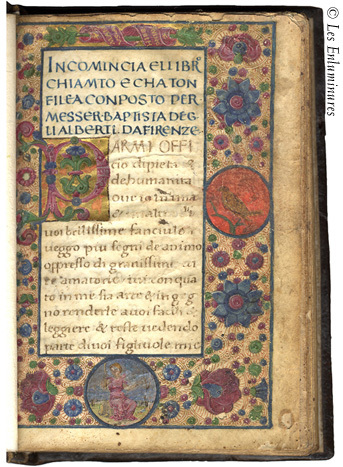 INCOMINCIA EL LIBR
CHIAMTO E CHATON
FILEA CONPOSTO PER
MESSER·BAPTISTA DE G
LI ALBERTI DA FIRENZE·
PARMI OFFI
cio di pietà &
de humanita
voi bellissime fanciule
veggo piu segni de animo
oppresso di gravissimi
te amatorie
to in me sia arte & ingeg
no renderle a voi facili &
leggiere & teste vedendo
parte di voi figliuole mie
© Les Enluminures